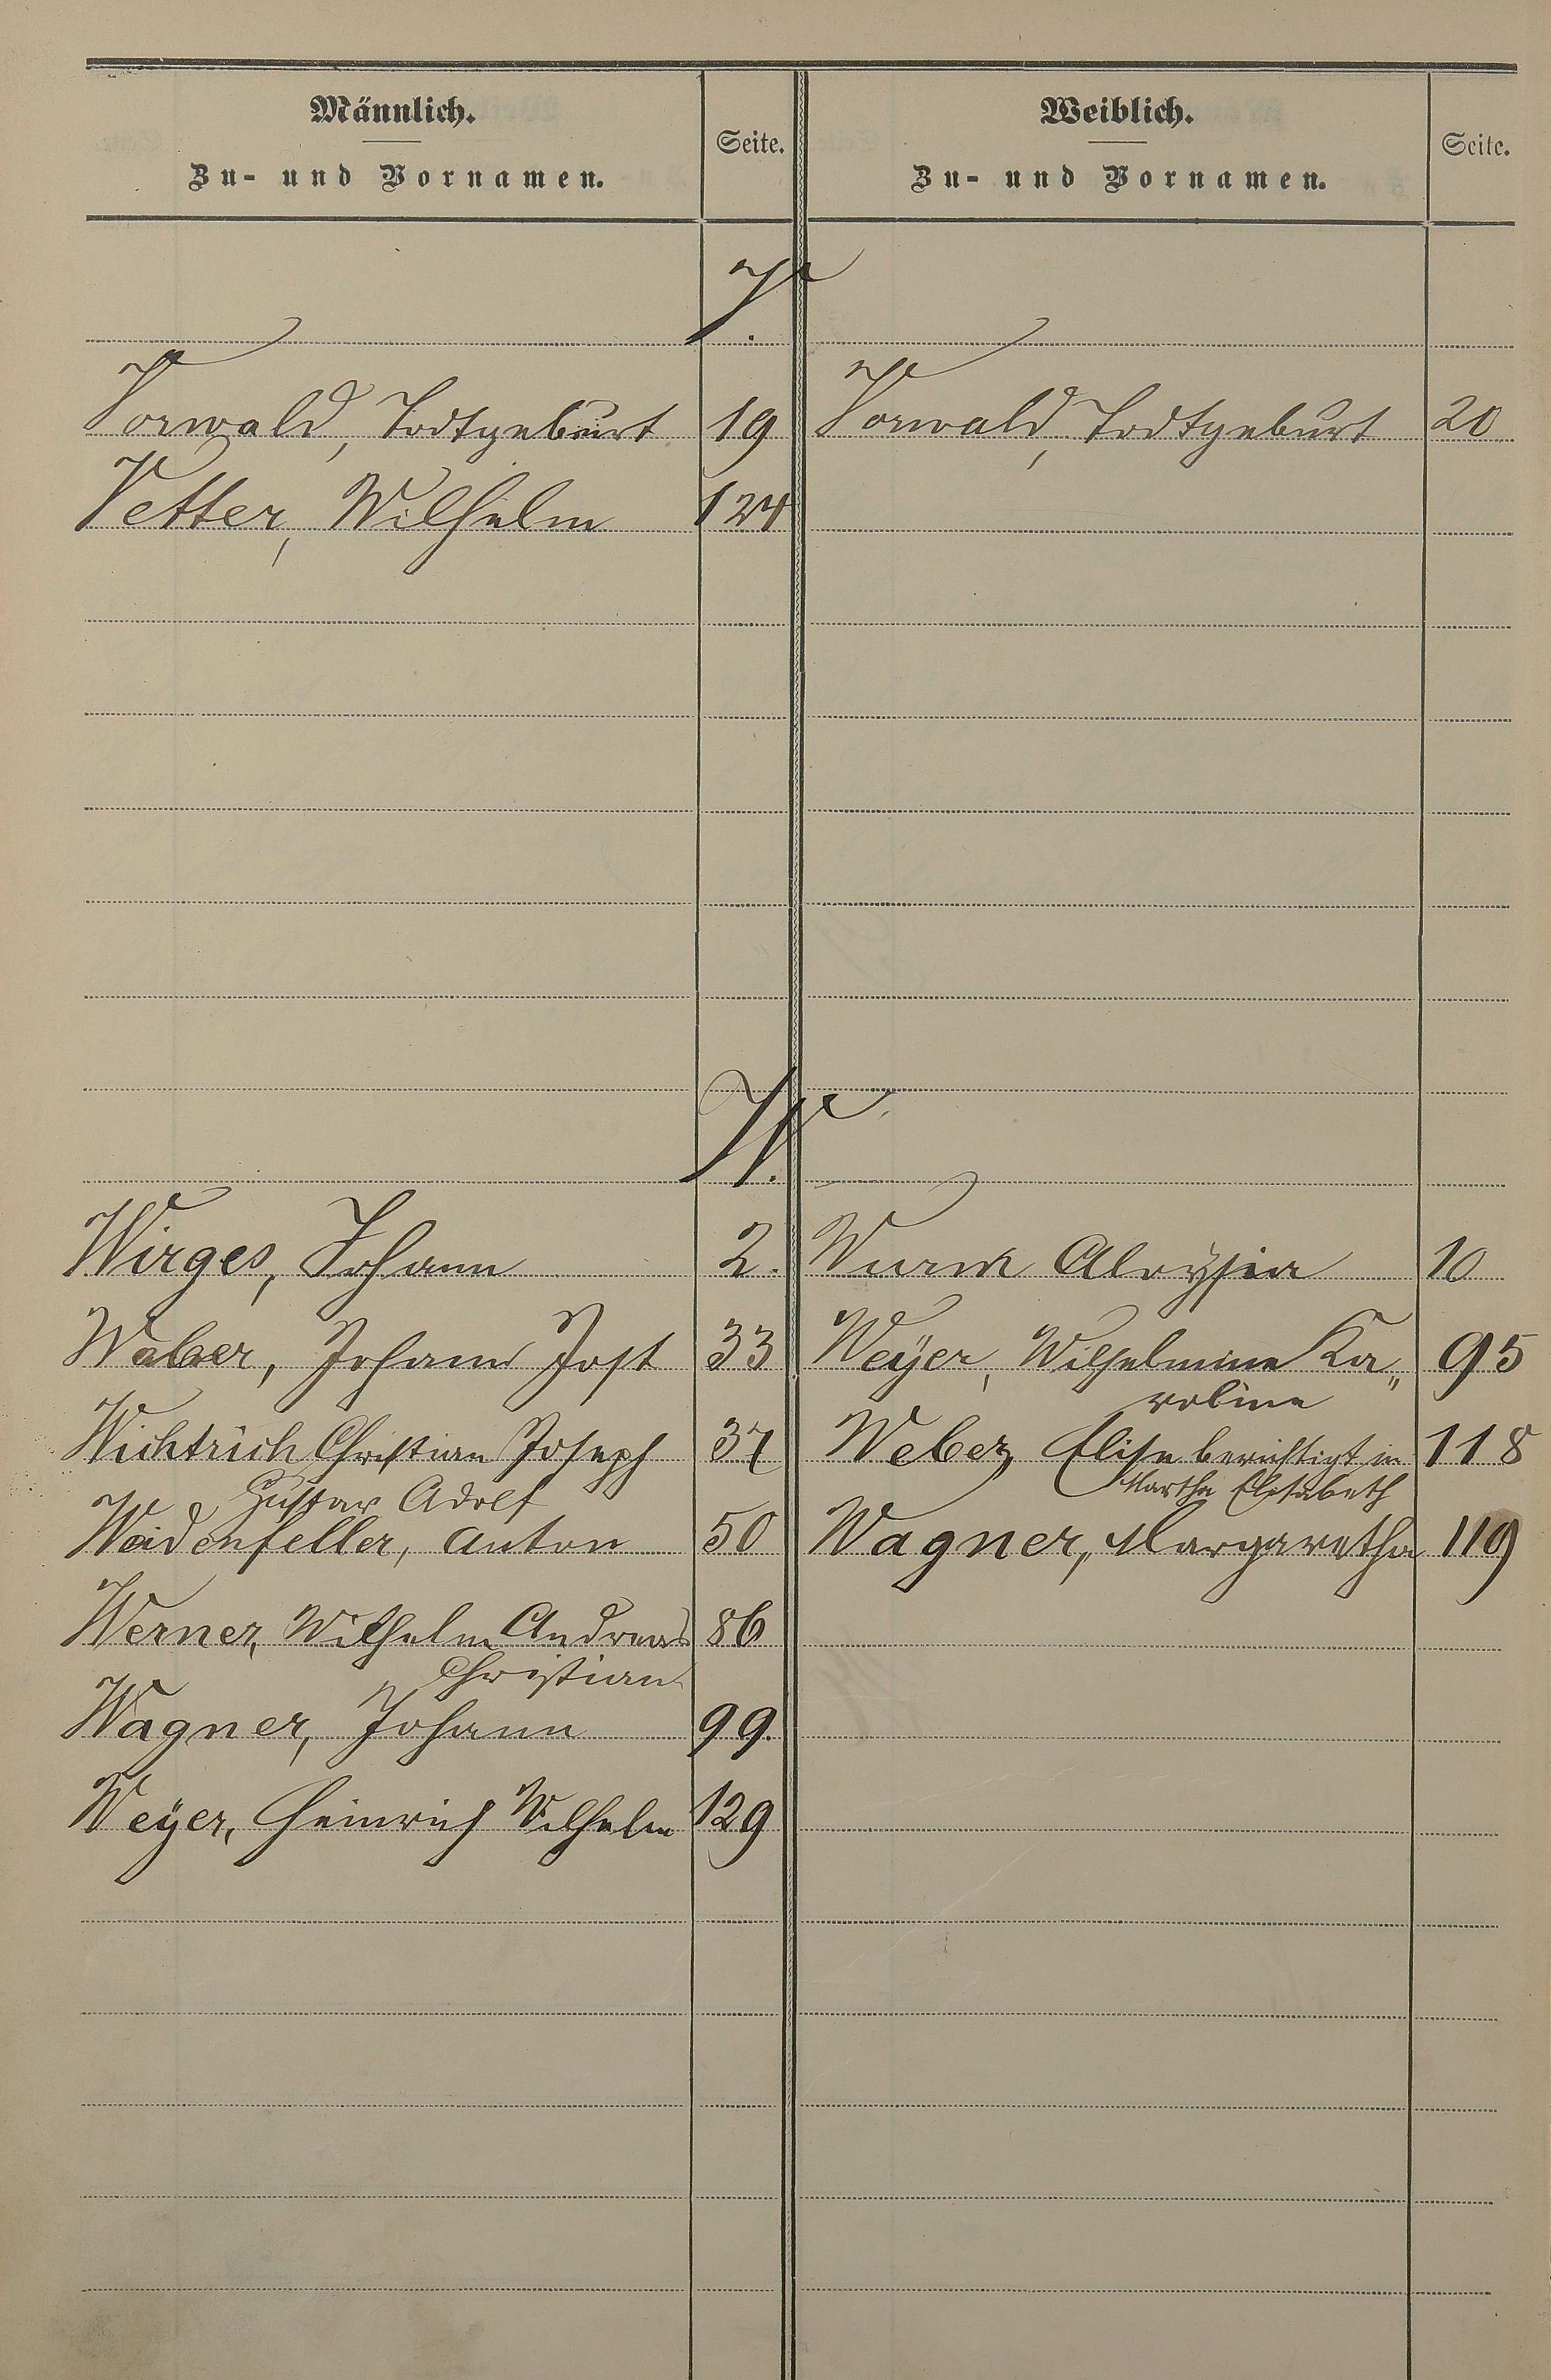 Männlich.
Zu- und Vornamen.
Seite.
Weiblich.
Zu- und Vornamen.
Seite.
V.
Vorwald, Todtgeburt 19 Vorwald, Todtgeburt 20
Vetter, Wilhelm 124
W.
Wirges, Johann 2. Wurm Aloysia 10
Weber, Johann Jost 33 Weyer, Wilhelmine Ka„ 95
roline
Wichtrich Christian Joseph 37 Weber, Elise berichtigt in 118
Gustav Adolf Martha Elisabeth
Weidenfeller, Anton 50 Wagner, Margaretha 119
Werner, Wilhelm Andreas 86
Christian
Wagner, Johann 99.
Weyer, Heinrich Wilhelm 129